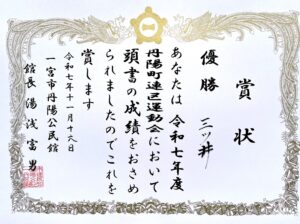 賞状
優勝 三ッ井
あなたは 令和七年度
丹陽町連区運動会において
頭書の成績をおさめ
られましたのでこれを
賞します
令和七年十一月十六日
一宮市丹陽公民館
館長 湯浅富男